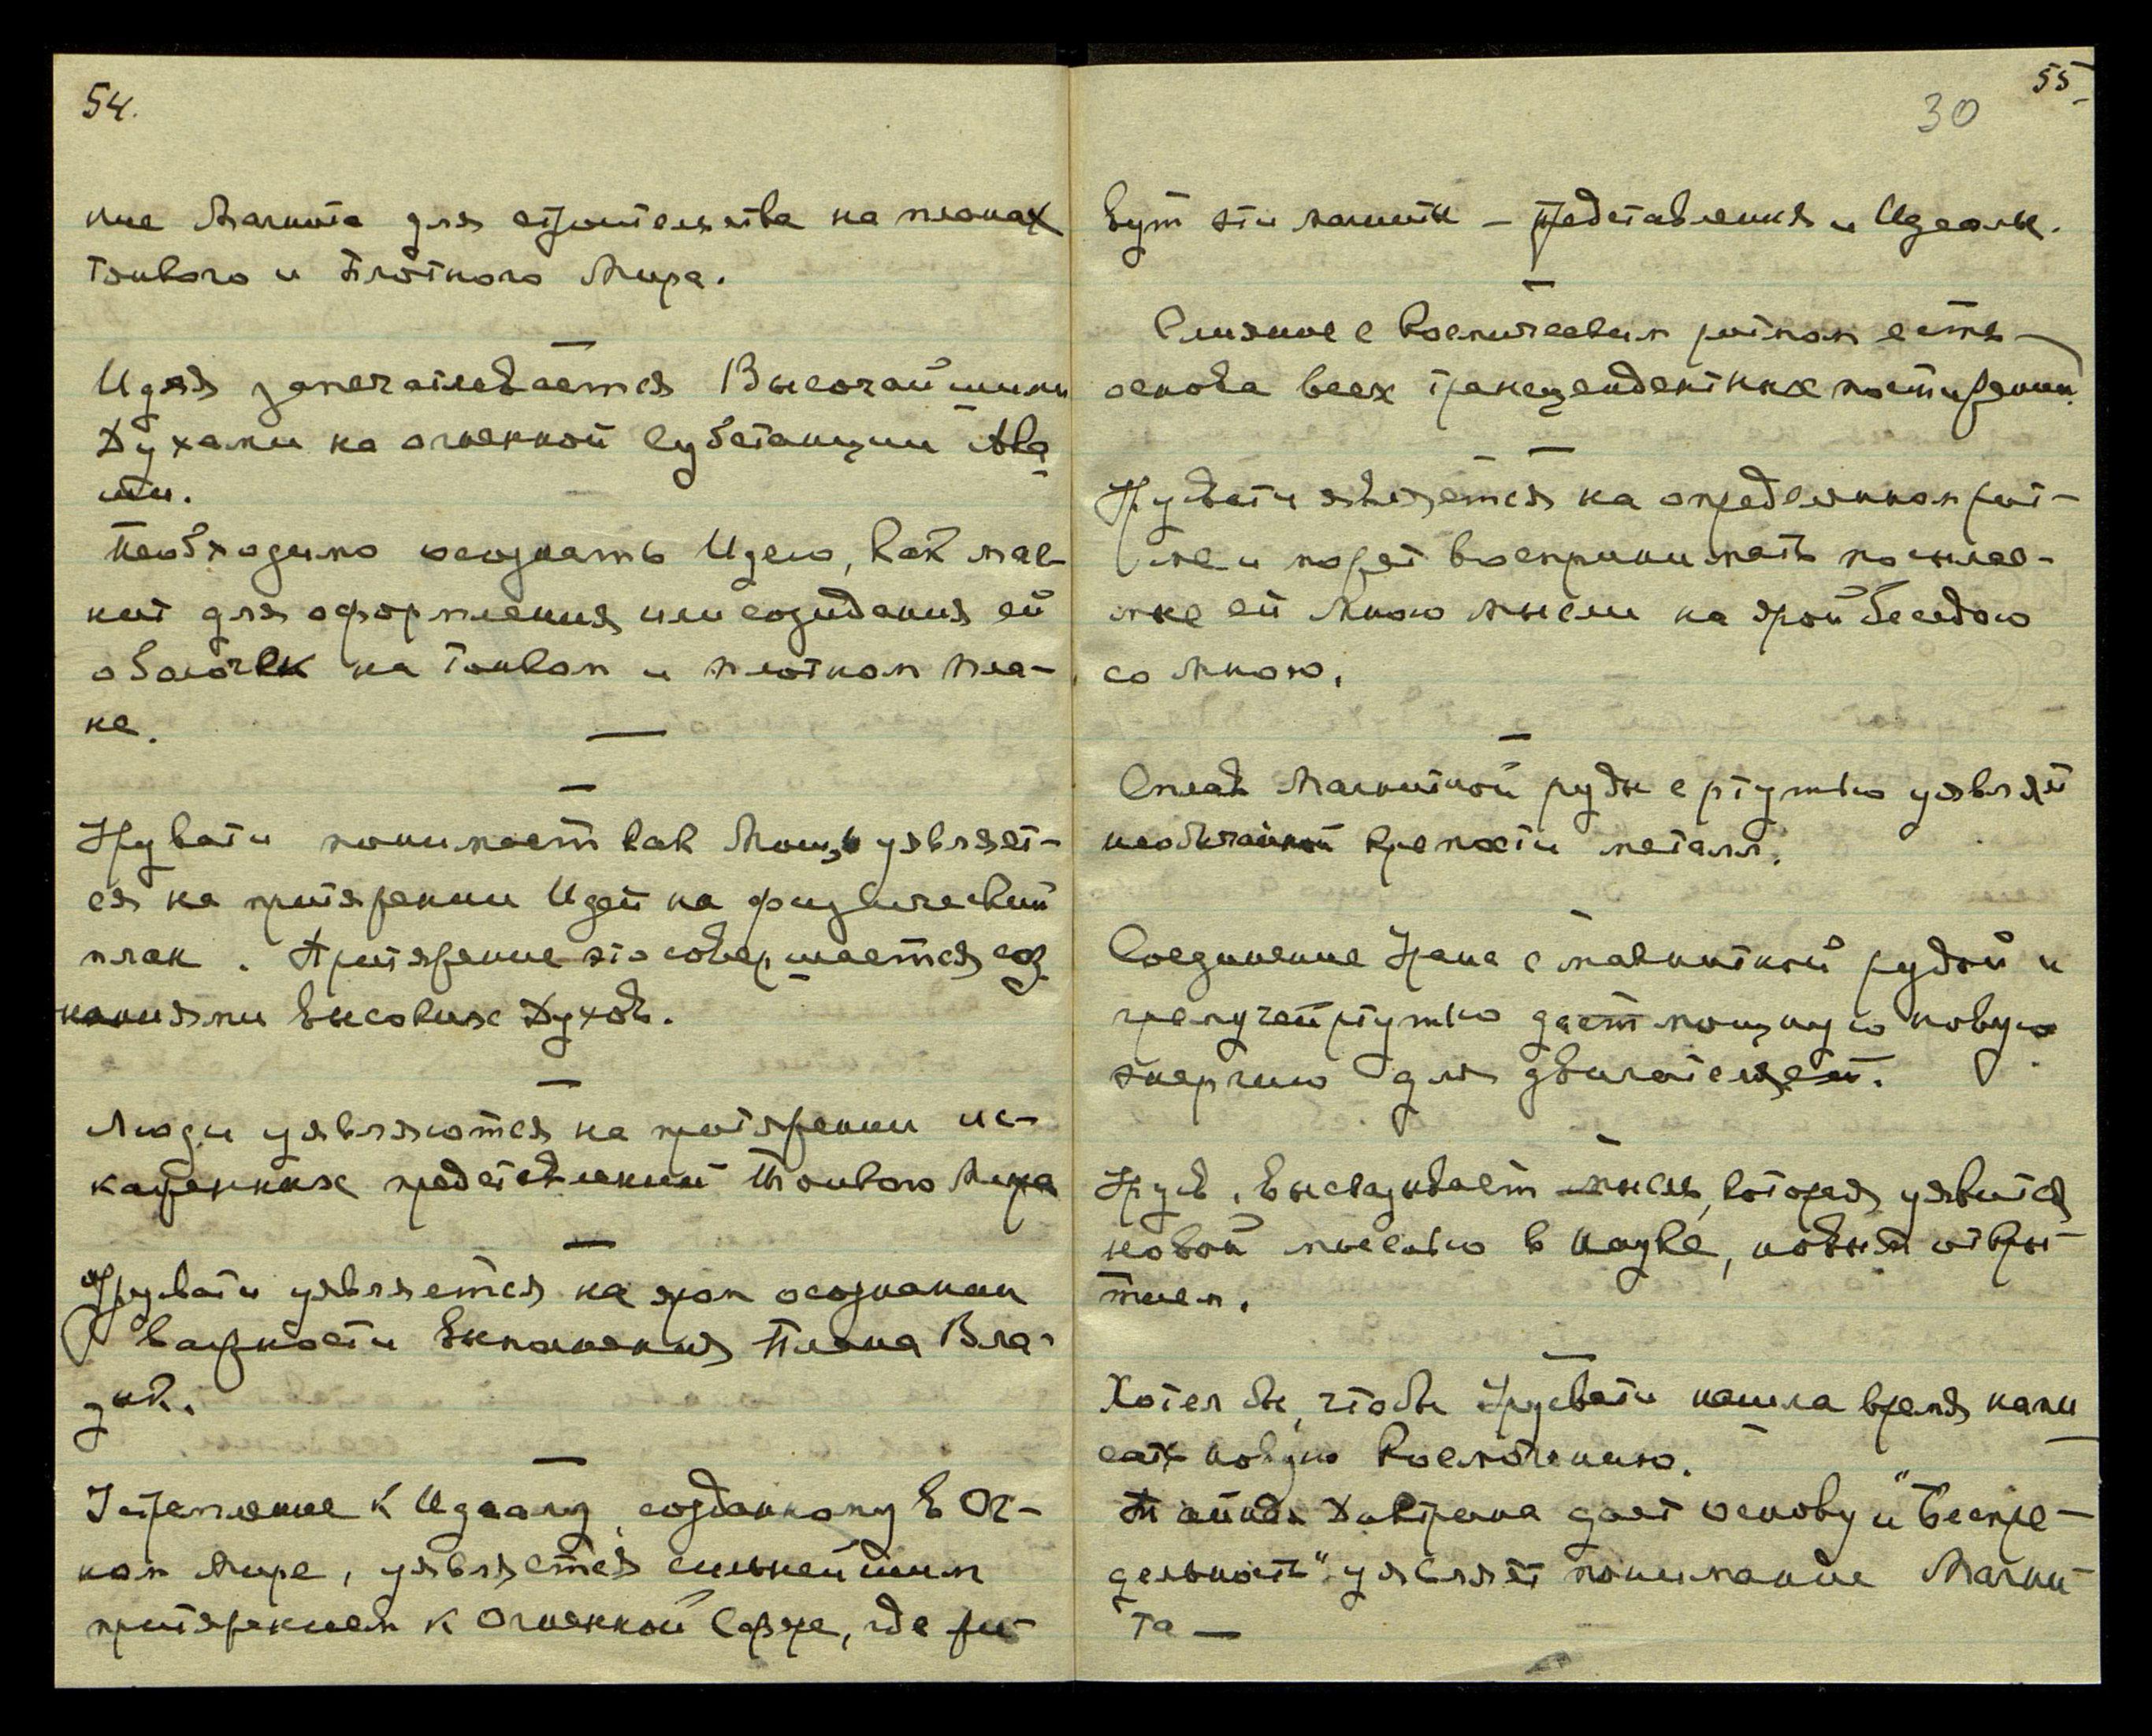 54.
ние Магнита для строительства на планах
Тонкого и Плотного Мира.
Идея запечатлевается Высочайшими
Духами на огненной субстанции Ака
ши.
Необходимо осознать Идею, как маг-
нит для оформления или созидания ей
оболочек на Тонком и плотном пла-
не.
Урувати понимает как Мощь уявляет-
ся на притяжении Идей на физический
план. Притяжение это совершается соз
наниями высоких Духов.
Люди уявляются на притяжении ис-
каженных представлений Тонкого Мира
Урусвати уявляется на яром осознании
важности выполнения Плана Вла-
дык.
Устремление к Идеалу, созданному в Ог-
ном Мире, уявляется сильнейшим
притяжением к Огненной Сфере, где жи-
55
30
вут эти магниты — представления и Идеалы.
Слияние с космическим ритмом есть
основа всех трансцендентных постижений.
Урувати является на определенном рит-
ме и может воспринимать посылае-
мые ей Мною мысли на ярой беседою
со Мною.
Сплав Магнитной руды с ртутью уявляет
необычайной крепости металл.
Соединение Урана с магнитной рудой и
гремучей ртутью дает мощную новую
энергию для двигателей.
Урусв. высказывает мысль, которая уявится
новой мыслью в науке, новым откры-
тием.
Хотел бы, чтобы Урусвати нашла время напи
сать новую Космогонию.
Тайная Доктрина дает основу и "Беспре-
дельность" уявляет понимание Магни-
та —